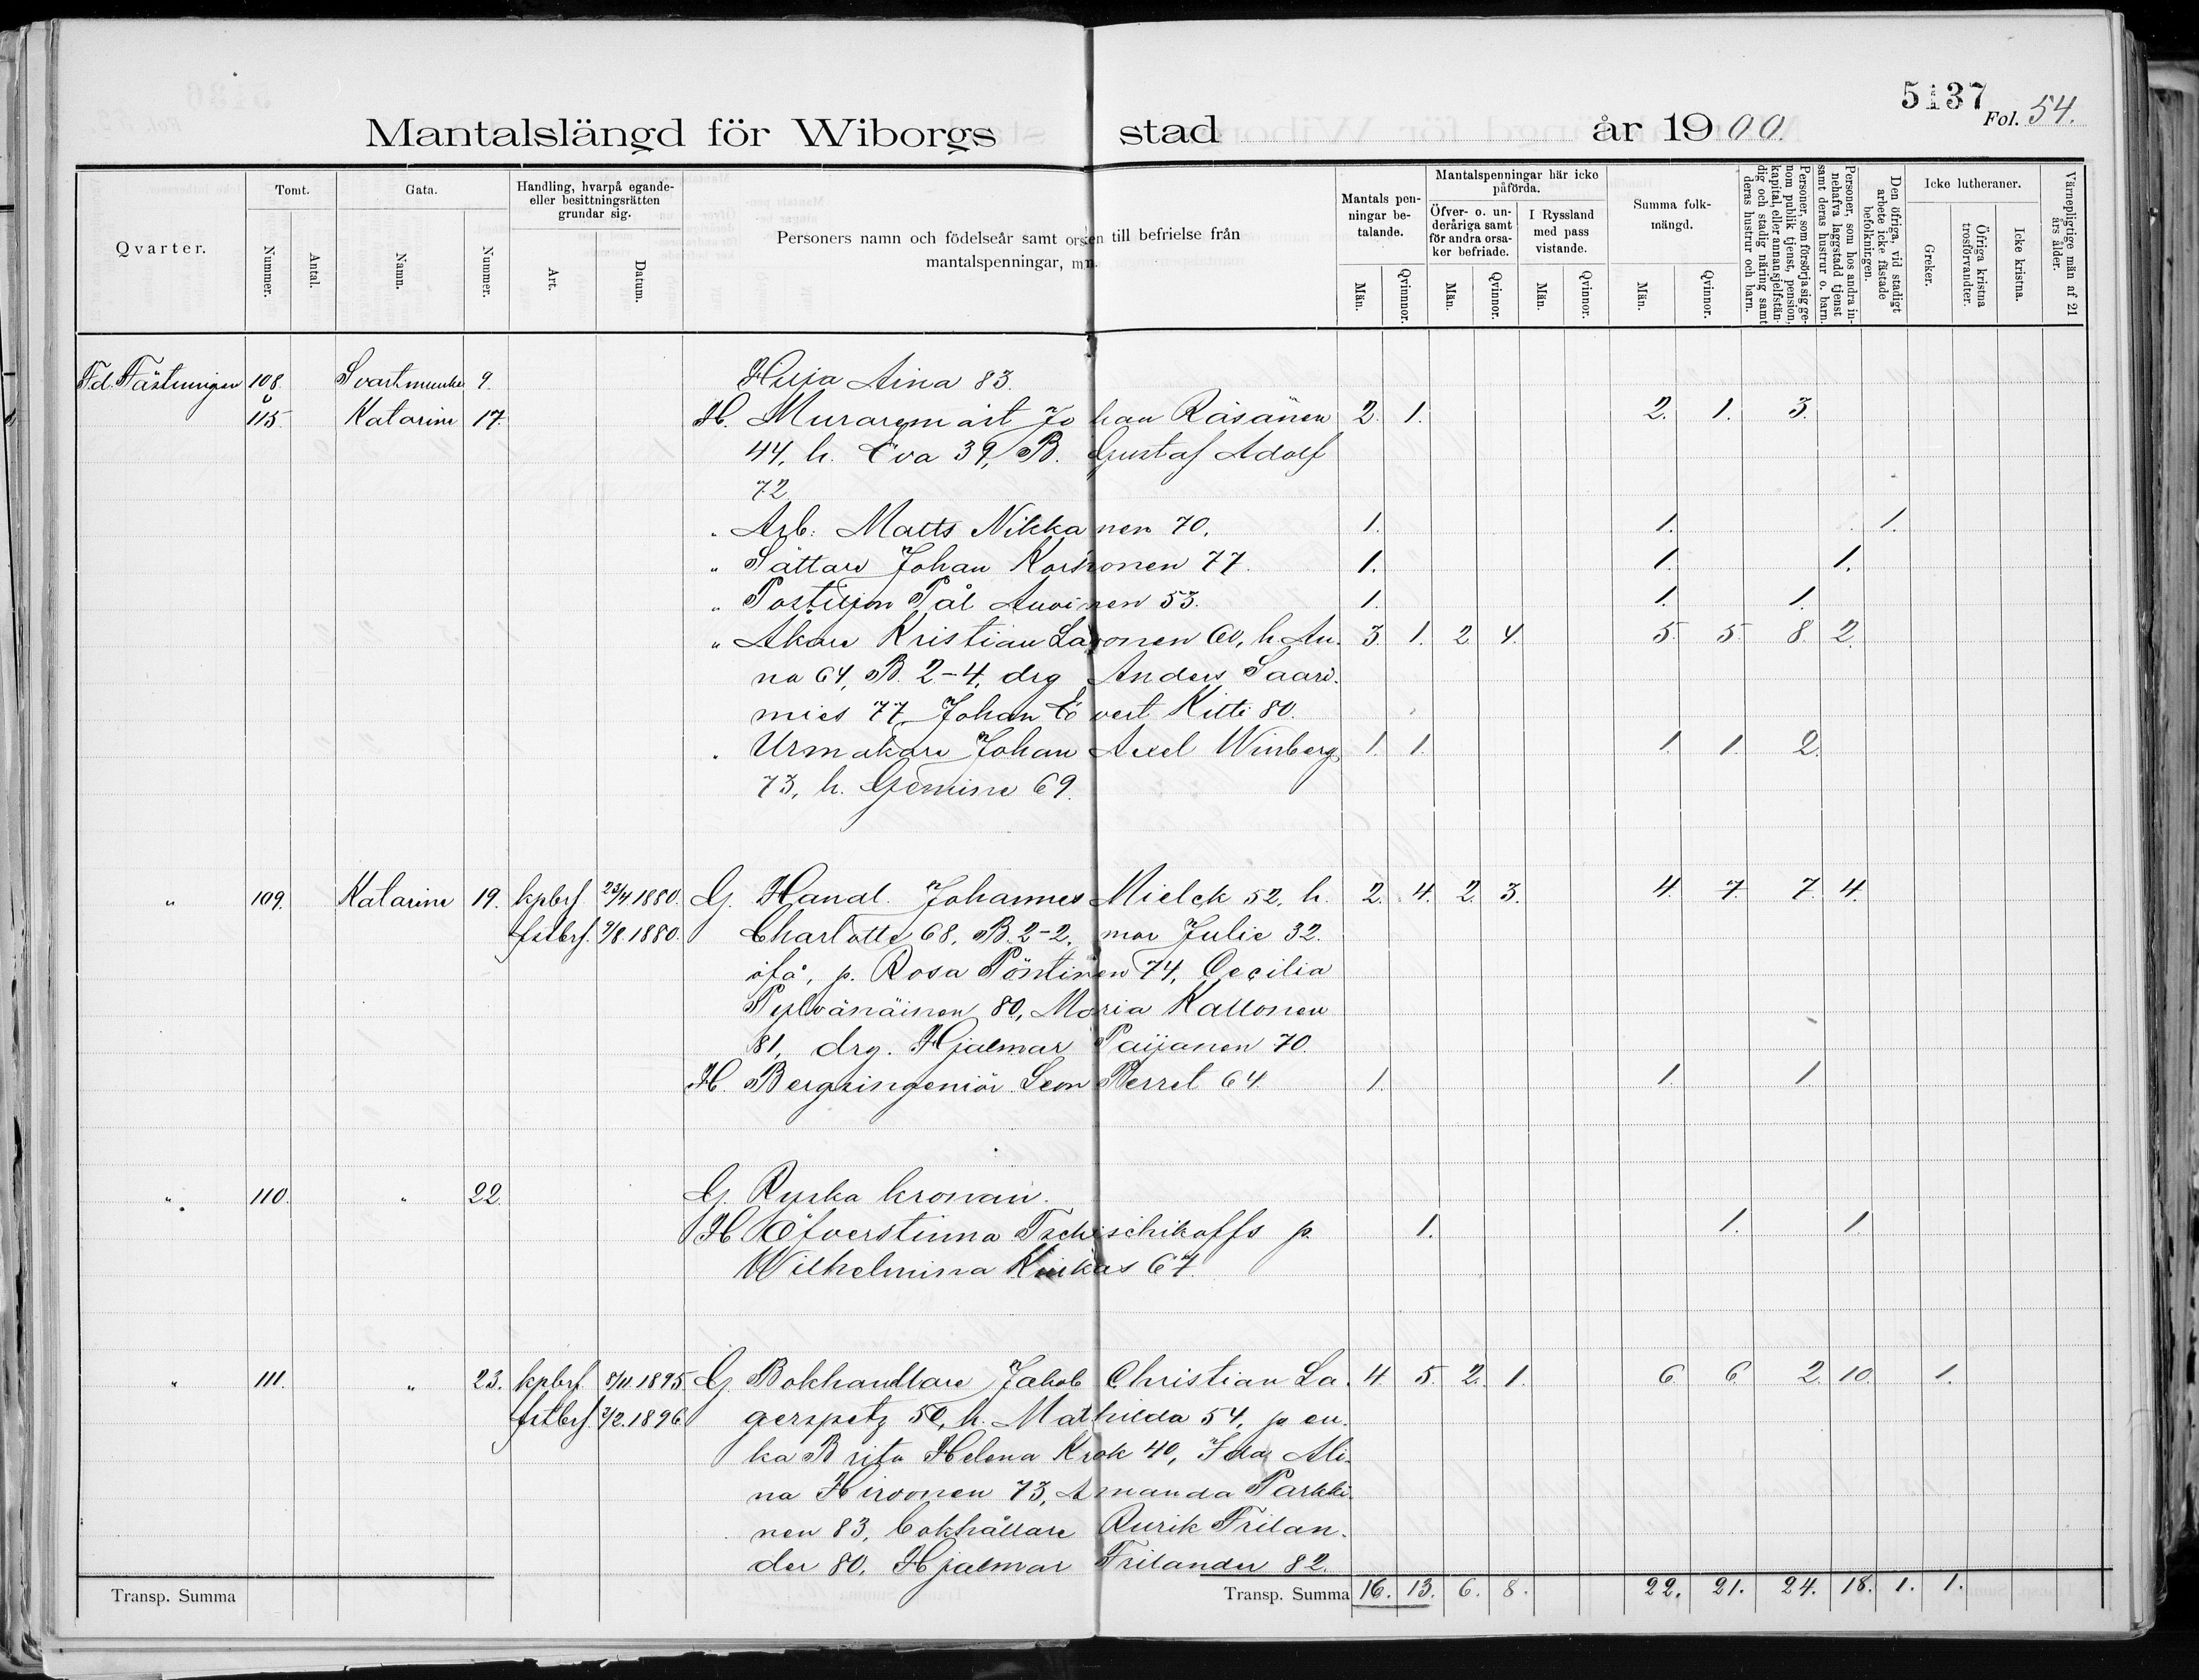 5137
Fol. 54.
Mantalslängd för Wiborgs stad år 1900.
Qvarter.
Tomt.
Nummer.
Antal.
Gata.
Namn.
Nummer.
Handling, hvarpå egande-
eller besittningsrätten
grundar sig.
Art.
Datum.
Personers namn och födelseår samt orsken till befrielse från
mantalspenningar, mm.
Mantals pen-
ningar be-
talande.
Män.
Qvinnor.
Mantalspenningar här icke
påförda.
Öfver- o. un-
deråriga samt
för andra orsa-
ker befriade.
Män.
Qvinnor.
I Ryssland
med pass
vistande.
Män.
Qvinnor.
Summa folk-
mängd.
Män.
Qvinnor.
Personer, som försörja sig ge-
nom publik tjenst, pension,
kapital, eller annan sjelfstän-
dig och stadig näring samt
deras hustrur och barn.
Personer, som hos andra in-
nehafva laggstadd tjenst
samt deras hustrur o. barn.
Den öfriga, vid stadigt
arbete icke fästade
befolkningen.
Icke lutheraner.
Greker.
Öfriga kristna
trosförvandter.
Icke kristna.
Värnepligtige män af 21
års ålder.
Fd. Fästningen 108. Svartmunke 9. Hilja Aina 83.
o
115. Katarine 17. H. Muraremäst Johan Räsänen 2. 1. 2. 1. 3.
44, h. Eva 39, B. Gustaf Adolf
72.
" Arb. Matts Nikkanen 70. 1. 1. 1.
" Sättare Johan Korhonen 77. 1. 1. 1.
" Postiljon Pål Auvinen 53. 1. 1. 1.
" Åkare Kristian Lavonen 60, h. An- 3. 1. 2. 4. 5. 5. 8. 2.
na 64, B. 2-4, drg Anders Saari-
mies 77, Johan Evert Kitti 80.
" Urmakare Johan Axel Winberg 1. 1. 1. 1. 2.
73, h. Gemine 69.
" 109. Katarine 19. kpbrf 23/4 1880. G. Handl. Johannes Mielck 52, h. 2. 4. 2. 3. 4. 7. 7. 4.
fstbrf. 9/8. 1880. Charlotte 68, B. 2-2, mor Julie 32.
öfå, p. Rosa Pöntinen 74, Cecilia
Pylvänäinen 80, Maria Kallonen
81, drg. Hjalmar Paijanen 70.
H. Bergsingeniör Leon Perret 64. 1. 1. 1.
" 110. " 22. G. Ryska kronan.
H. Öfverstinna Tschischikoffs p. 1. 1. 1.
Wilhelmina Kukas 67.
" 111. " 23. kpbrf 8/11. 1895. G. Bokhandlare Jakob Christian La- 4. 5. 2. 1. 6. 6. 2. 10. 1.
fstbrf. 3/2. 1896. gerspetz 50, h. Mathilda 54, p. en-
ka Brita Helena Krok 40, Ida Ali-
na Hirvonen 73, Amanda Parkki-
nen 83, bokhållare Rurik Frilan-
der 80, Hjalmar Frilander 82.
Transp. Summa
Transp. Summa 16. 13. 6. 8. 22. 21. 24. 18. 1. 1.